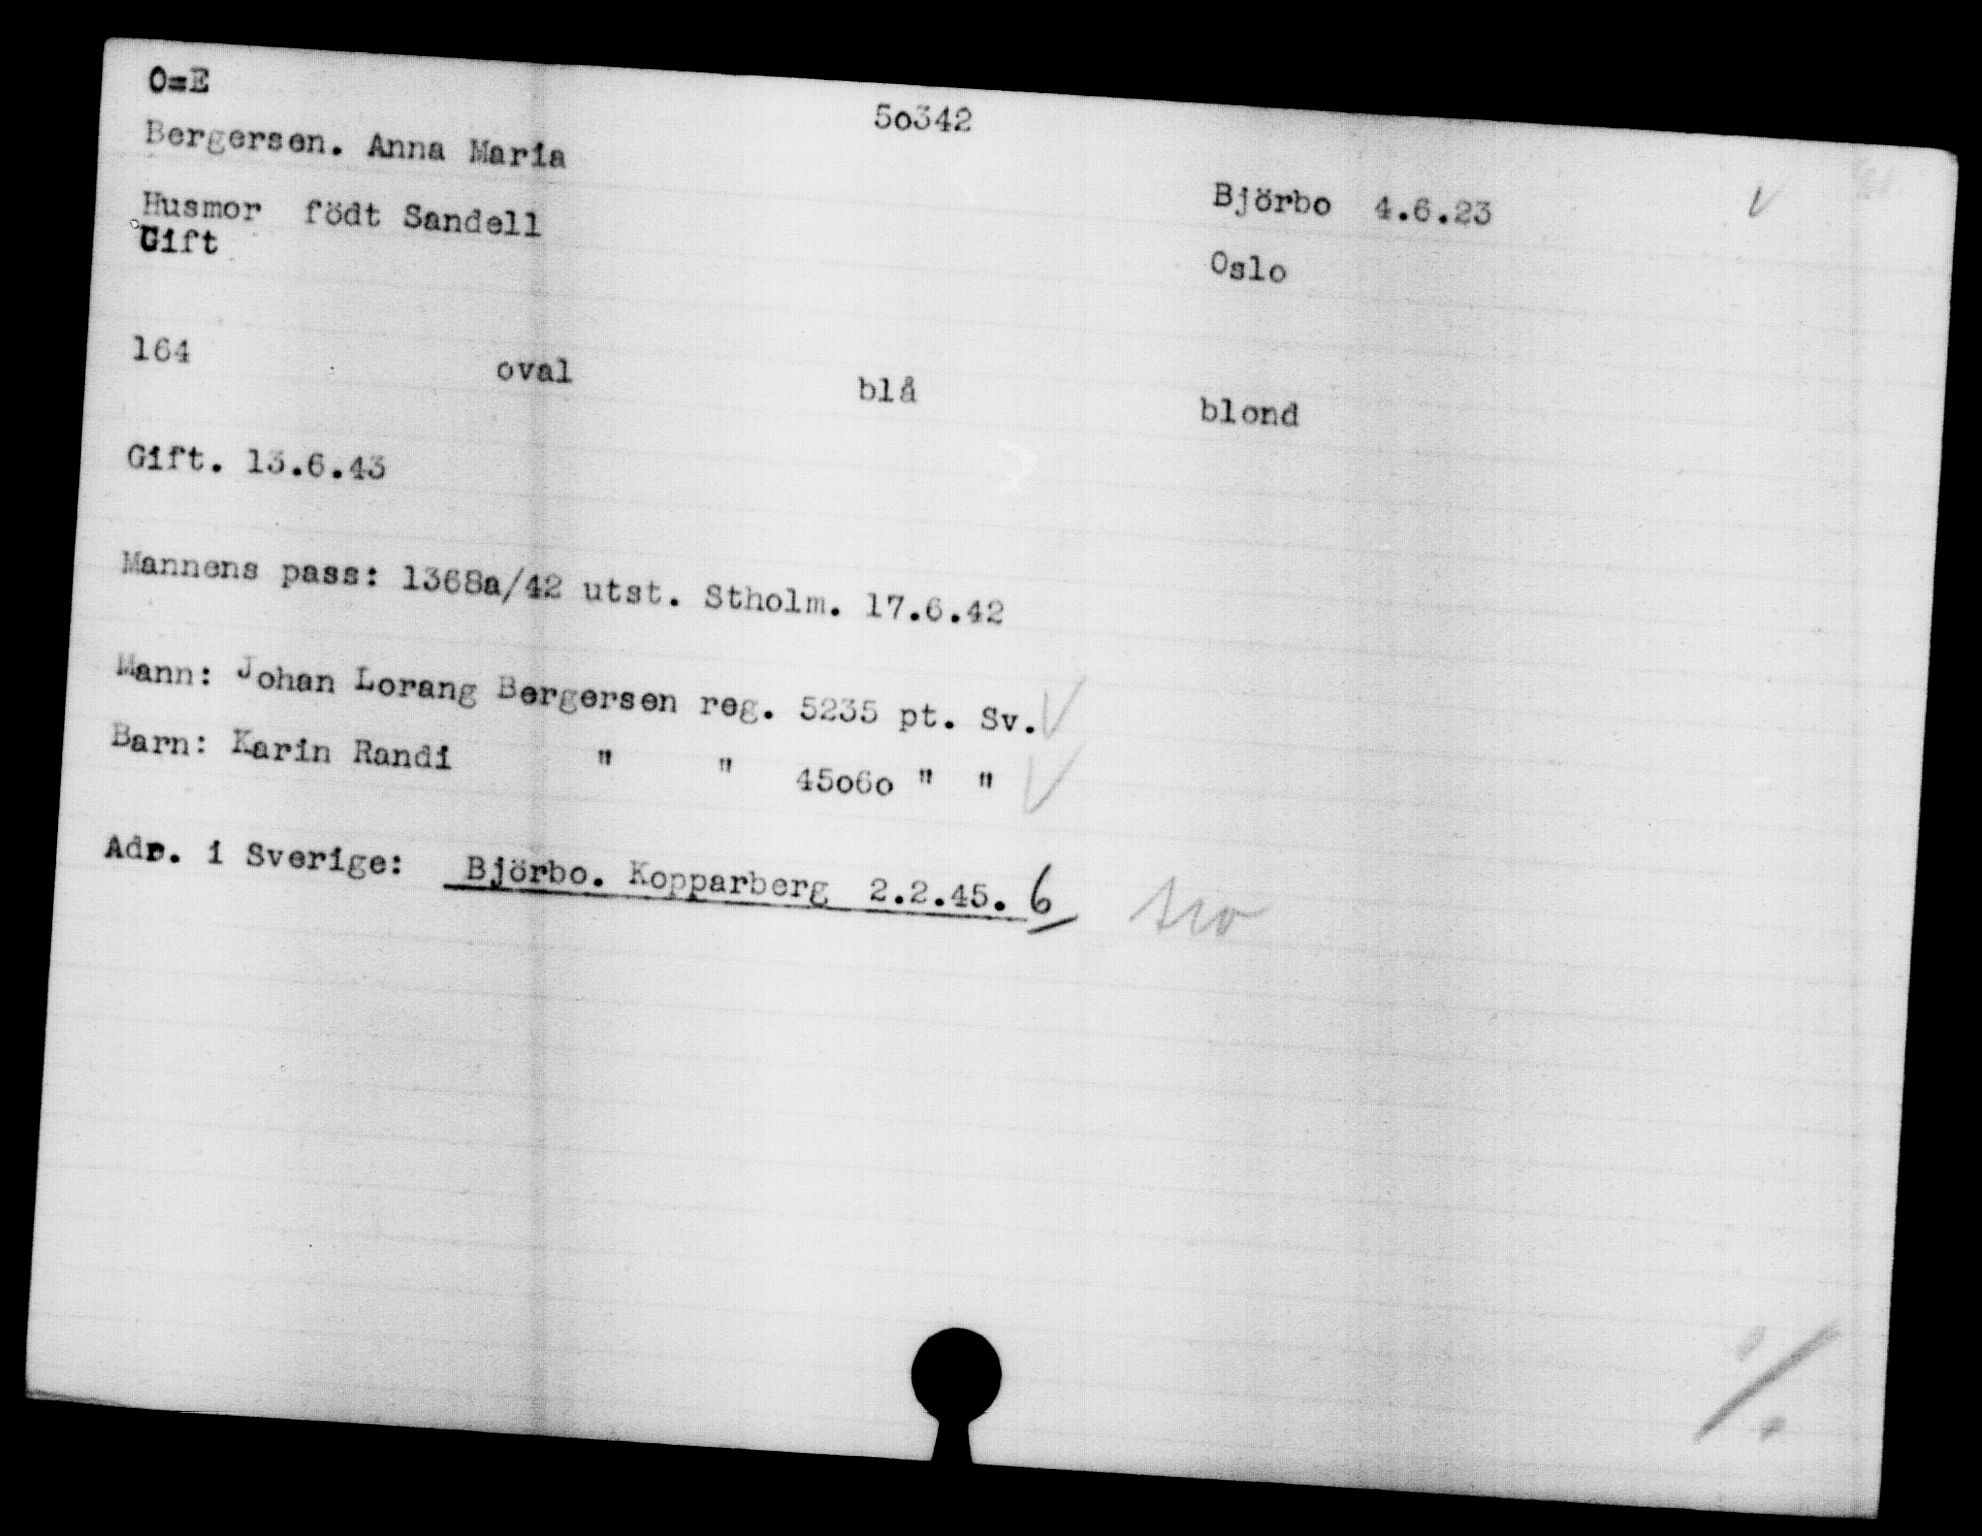 O=E
5o342
Bergersen. Anna Maria
Björbo 4.6.23
Husmor födt Sandell
Gift
Oslo
164 oval blå blond
Gift. 13.6.43
Mannens pass: 1368a/42 utst. Stholm. 17.6.42
Mann: Johan Lorang Bergersen reg. 5235 pt. Sv.
Barn: Karin Randi " " 45o6o " "
Adr. i Sverige: Björbo. Kopparberg 2.2.45. 6